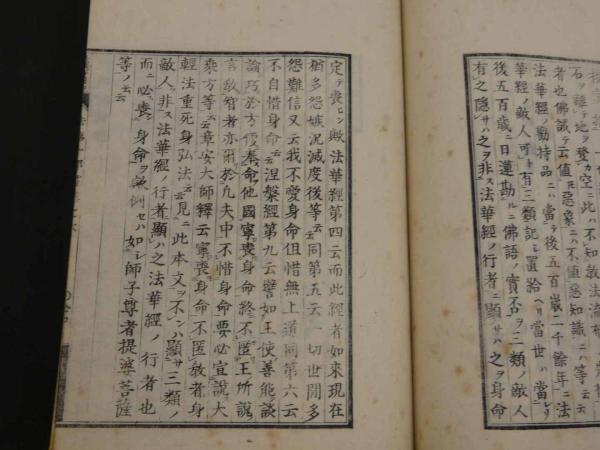 石ヲ離テ地ヲ登ル空ニ此ハ不知教法流布
者也佛誡テ云値ヒ惡象ニハ不値惡知識ニハ等云云
法華經ノ勸持品ニハ當テ後五百歳二千餘年ニ法
華經ノ敵人可キト有三類記シ置給ヘリ當世ハ當レリ
後五百歳ニ日蓮勘ルニ佛語ノ實否ヲ三類ノ敵人
有リ之隱サハ之ヲ非ス法華經ノ行者ニ顯サハ之ヲ身命
定テ喪ヒン歟法華經第四云而此經者如來現在
猶多怨嫉況滅度後等云云同第五云一切世間多
怨難信又云我不愛身命但惜無上道同第六云
不自惜身命云云涅槃經第九云譬如王使善能談
論巧於方便奉命他國寧喪身命終不匿王所說
言教智者亦爾於凡夫中不惜身命要必宣說大
乘方等云云章安大師釋云寧喪身命不匿教者身
輕法重死身弘法云云見ニ此本文ヲ不ンハ顯サ三類ノ
敵人ヲ非ス法華經ノ行者ニ顯ハ之法華經ノ行者也
而ニ必喪身命ヲ歟例セハ如シ師子尊者提婆菩薩
等ノ云云